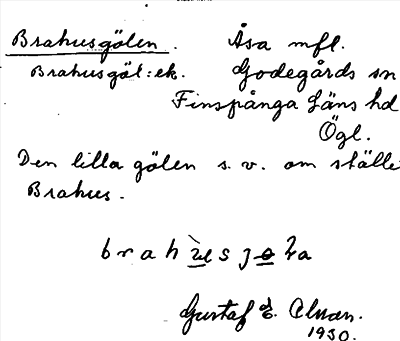 Brahusgölen. Åsa mfl.
Brahusgöl: ek. Godegårds sn
Finspånga läns hd
Ögl.
Den lilla gölen s. v. om ställe
Brahus.
Gustaf
1930.